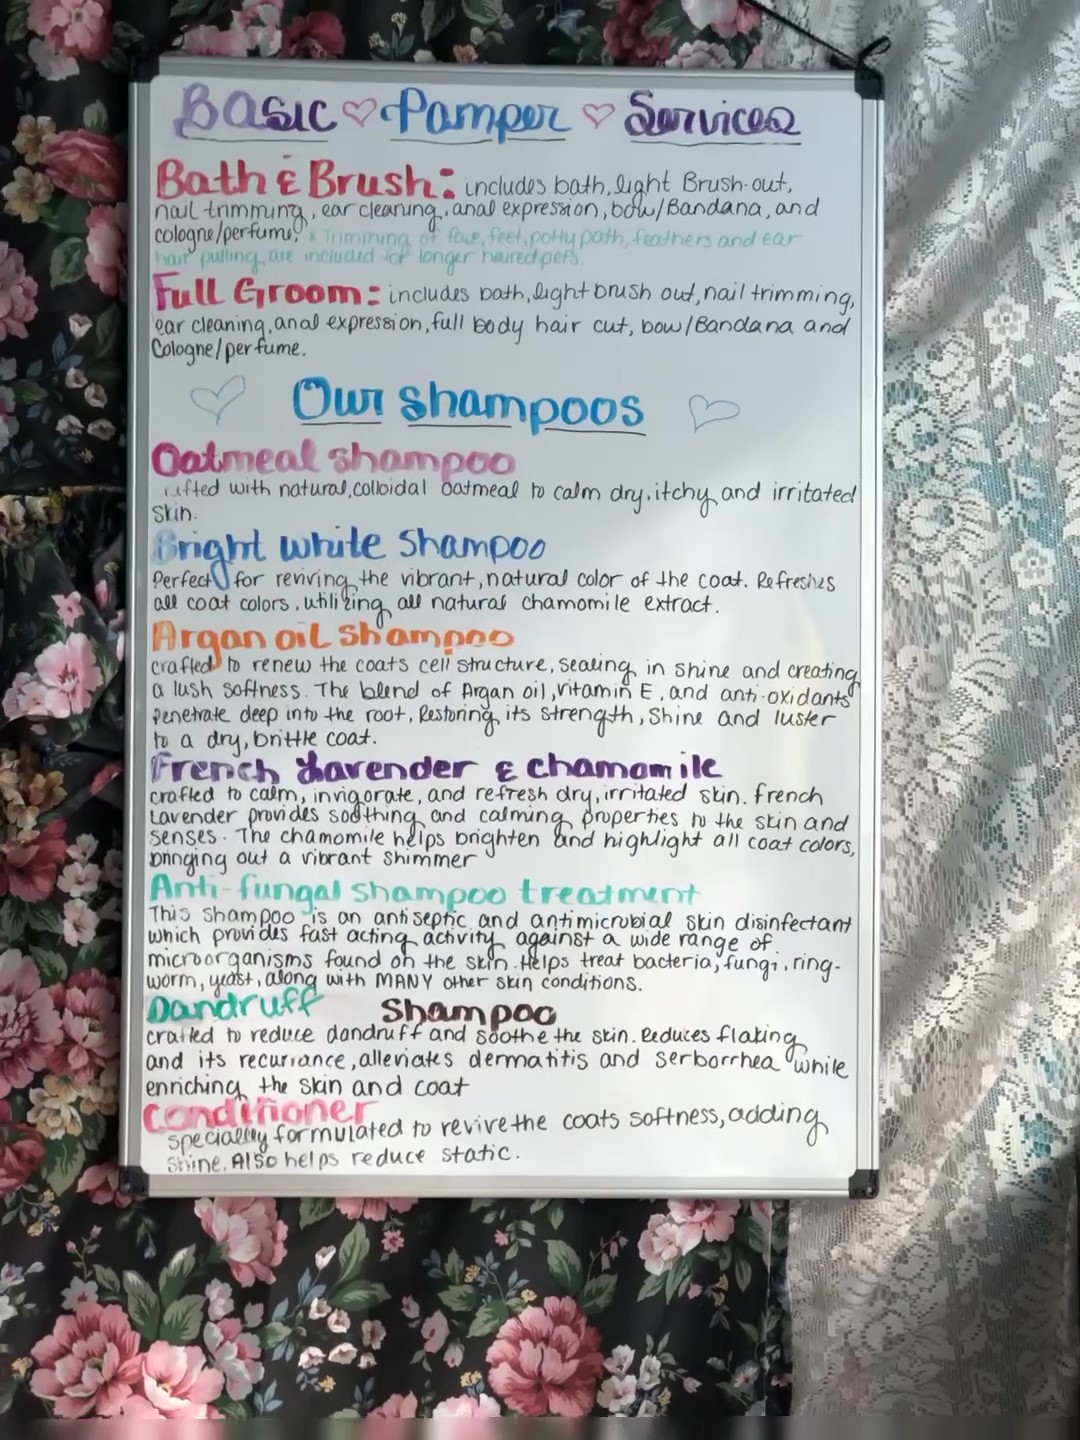 Basic Pamper Services
Bath & Brush: includes bath, light Brush-out,
nail trimming, ear cleaning, anal expression, bow/Bandana, and
cologne/perfume. * Trimming of face, feet, potty path, feathers and ear
hair pulling are included for longer haired pets.
Full Groom: includes bath, light brush out, nail trimming,
ear cleaning, anal expression, full body hair cut, bow/Bandana and
Cologne/perfume.
Our shampoos
Oatmeal shampoo
rafted with natural, colloidal oatmeal to calm dry, itchy and irritated
skin.
Bright white shampoo
Perfect for reviving the vibrant, natural color of the coat. Refreshes
all coat colors, utilizing all natural chamomile extract.
Argan oil shampoo
crafted to renew the coats cell structure, sealing in shine and creating
a lush softness. The blend of Argan oil, vitamin E, and anti-oxidants
Penetrate deep into the root, Restoring its strength, Shine and luster
to a dry, brittle coat.
French Lavender & chamomile
crafted to calm, invigorate, and refresh dry, irritated skin. French
Lavender provides soothing and calming properties to the skin and
senses. The chamomile helps brighten and highlight all coat colors,
bringing out a vibrant shimmer
Anti-fungal shampoo treatment
This shampoo is an antiseptic and antimicrobial skin disinfectant
which provides fast acting activity against a wide range of
microorganisms found on the skin. Helps treat bacteria, fungi, ring-
worm, yeast, along with MANY other skin conditions.
Dandruff Shampoo
crafted to reduce dandruff and soothe the skin. Reduces flaking
and its recurrance, alleviates dermatitis and serborrhea while
enriching the skin and coat
Conditioner
specially formulated to revive the coats softness, adding
shine. Also helps reduce static.